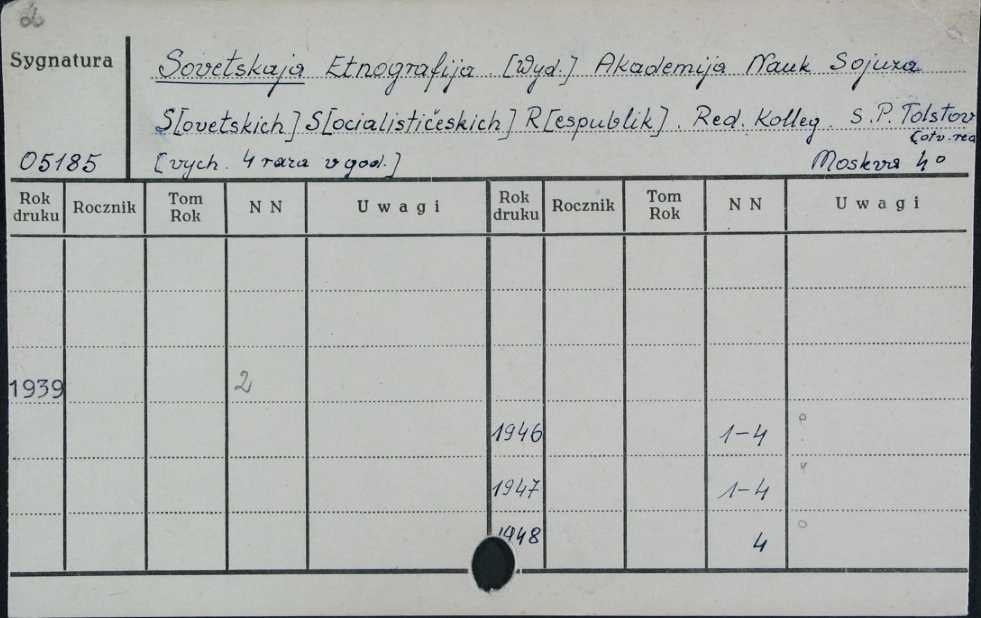 Sygnatura
Sovetskaja Etnografija [Wyd.] Akademija Nauk Sojuza
S[ovetskich] S[ocialističeskich] R[espublik]. Red. Kolleg. S.P. Tolstov
(otv. red
05185 [vych. 4 raza v god.] Moskva 4°
Rok druku Rocznik Tom Rok N N Uwagi Rok druku Rocznik Tom Rok N N Uwagi
1939 2
1946 1-4
1947 1-4
1948 4